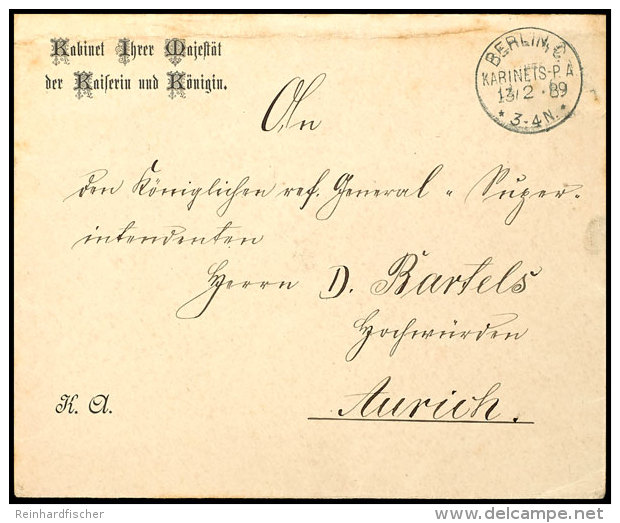 Kabinet Ihrer Majestät
der Kaiserin und Königin.
BERLIN, C.
KABINETS-P.A
13/2 89
* 3-4N. *
An
den Königlichen ref. General - Super-
intendenten
Herrn D. Bartels
Hochwürden
Aurich.
K. A.
Reinhardfischer
delcampe.net